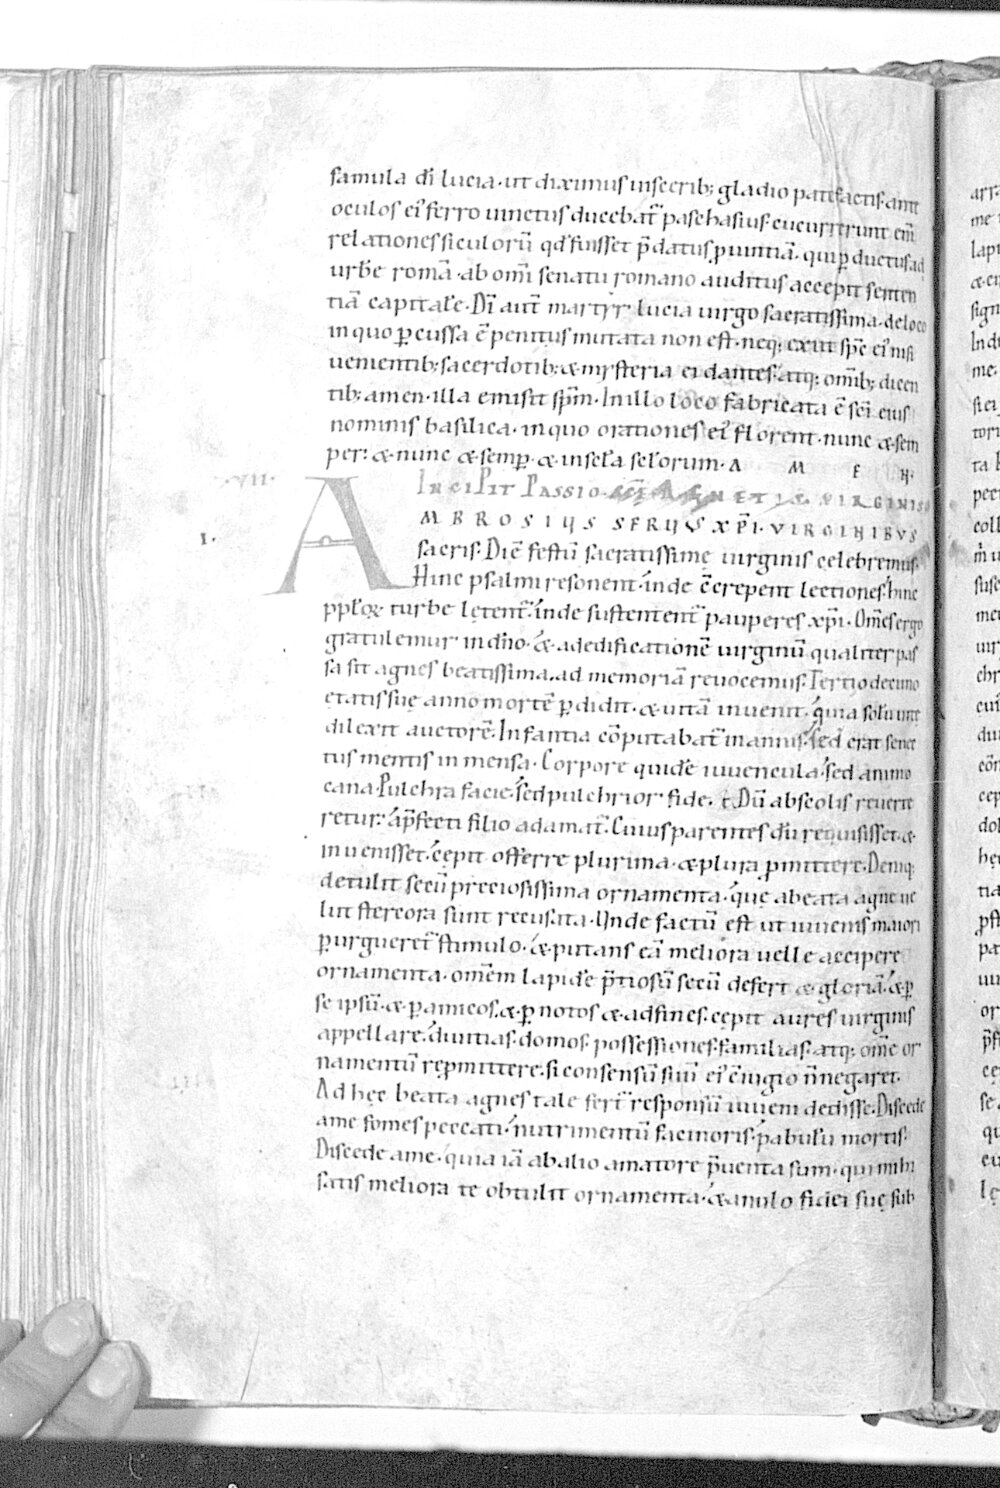 famula dī lucia · ut diximus inscrib; gladio patefactis · ante
oculos ei' ferro uinctus ducebat̄ paschasius · cucurrerunt em̄
relationes siculorū qd' fuisset p̄datus ꝓuintiā · qui ꝑductus ad
urbē romā · ab om̄i senatu romano auditus accepit senten
tiā capitalē · Dī aut̄ martyr lucia uirgo sacratissima · de loco
in quo ꝑcussa ē penitus mutata non est · neq; exiit sp̄c ei' nisi
uenientib; sacerdotib; & mysteria ei dantes · atq; omīb; dicen
tib; amen · illa emisit spm̄ · In illo loco fabricata ē scī eius
nominis basilica · in quo orationes ei' florent · nunc & sem
per : & nunc & semꝑ · & in scl̄a sclorum · A M E N ·
· VII ·
INCIPIT PASSIO · SCE AGNETIS · VIRGINIS
I · AMBROSIUS SERUUS XP̄I · VIRGINIBUS
sacris · Diē festū sacratissimę uirginis celebremus ·
Hinc psalmi resonent · inde c̄crepent lectiones · hinc
ppl̄oꝝ turbe lętent̄ · inde sustentent̄ pauperes xp̄i · Om̄es ergo
gratulemur in dn̄o · & ad edificationē uirginū qualiter pas
sa sit agnes beatissima · ad memoriā reuocemus · Tertio decimo
etatis suę anno mortē ꝑdidit · & uitā inuenit · quia solū uitę
dilexit auctorē · Infantia cōputabat̄ in annis · sed erat senec
tus mentis inmensa · Corpore quidē iuuencula · sed animo
cana · Pulchra facie · sed pulchrior fide · Dū a bscolis reuerte
retur · a p̄fecti filio adamat̄ · Cuius parentes dū requisisset · &
inuenisset · cępit offerre plurima · & plura ꝓmittere · Deniq;
detulit secū preciosissima ornamenta · quę a beata agne ue
lut stercora sunt recusata · Unde factū est ut iuuenis maiori
ꝑurgueret̄ stimulo · & putans eā meliora uelle accipere
ornamenta · omnem lapidē p̄tiosū secū defert & gloriā · & ꝑ
se ipsū · & ꝑ amicos · & ꝑ notos & adfines · cępit aures uirginis
appellare · diuitias · domos · possessiones · familias · atq; om̄e or
namentū rępmittere · si consensū suū ei' c̄iugio n̄ negaret ·
Ad hęc beata agnes tale fert̄ responsū iuueni dedisse · Discede
a me fomes peccati · nutrimentū facinoris · pabulū mortis ·
Discede a me · quia iā ab alio amatore p̄uenta sum · qui mihi
satis meliora te obtulit ornamenta · & anulo fidei suę sub